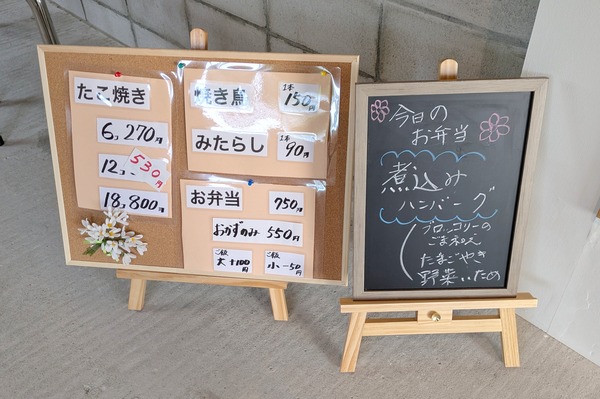 たこ焼き
6コ 270円
12コ 530円
18コ 800円
焼き鳥
1本 150円
みたらし
1本 90円
お弁当 750円
おかずのみ 550円
ご飯
大 +100円
ご飯
小 -50円
今日の
お弁当
煮込み
ハンバーグ
ブロッコリーの
ごまあえ
たまごやき
野菜いため